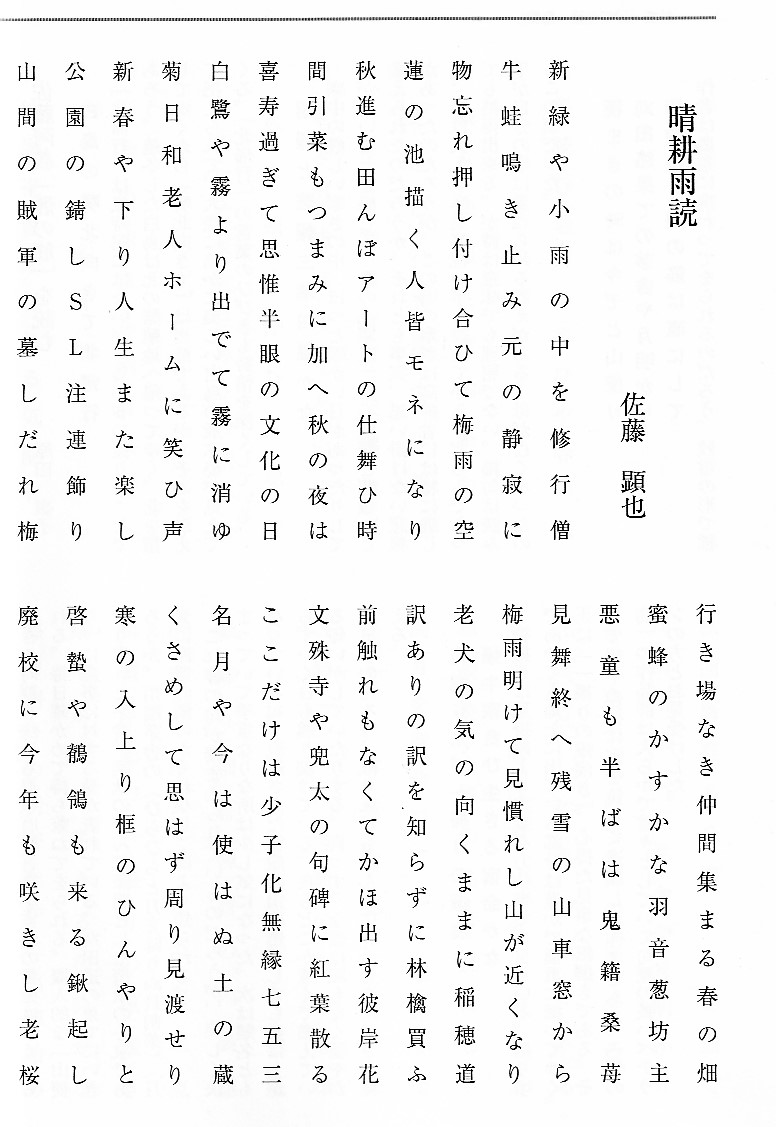 晴耕雨読
佐藤 顕也
新緑や小雨の中を修行僧
牛蛙鳴き止み元の静寂に
物忘れ押し付け合ひて梅雨の空
蓮の池描く人皆モネになり
秋進む田んぼアートの仕舞ひ時
間引菜もつまみに加へ秋の夜は
喜寿過ぎて思惟半眼の文化の日
白鷺や霧より出でて霧に消ゆ
菊日和老人ホームに笑ひ声
新春や下り人生また楽し
公園の錆しSL注連飾り
山間の賊軍の墓しだれ梅
行き場なき仲間集まる春の畑
蜜蜂のかすかな羽音葱坊主
悪童も半ばは鬼籍桑苺
見舞終へ残雪の山車窓から
梅雨明けて見慣れし山が近くなり
老犬の気の向くままに稲穂道
訳ありの訳を知らずに林檎買ふ
前触れもなくてかほ出す彼岸花
文殊寺や兜太の句碑に紅葉散る
ここだけは少子化無縁七五三
名月や今は使はぬ土の蔵
くさめして思はず周り見渡せり
寒の入上り框のひんやりと
啓蟄や鶺鴒も来る鍬起し
廃校に今年も咲きし老桜